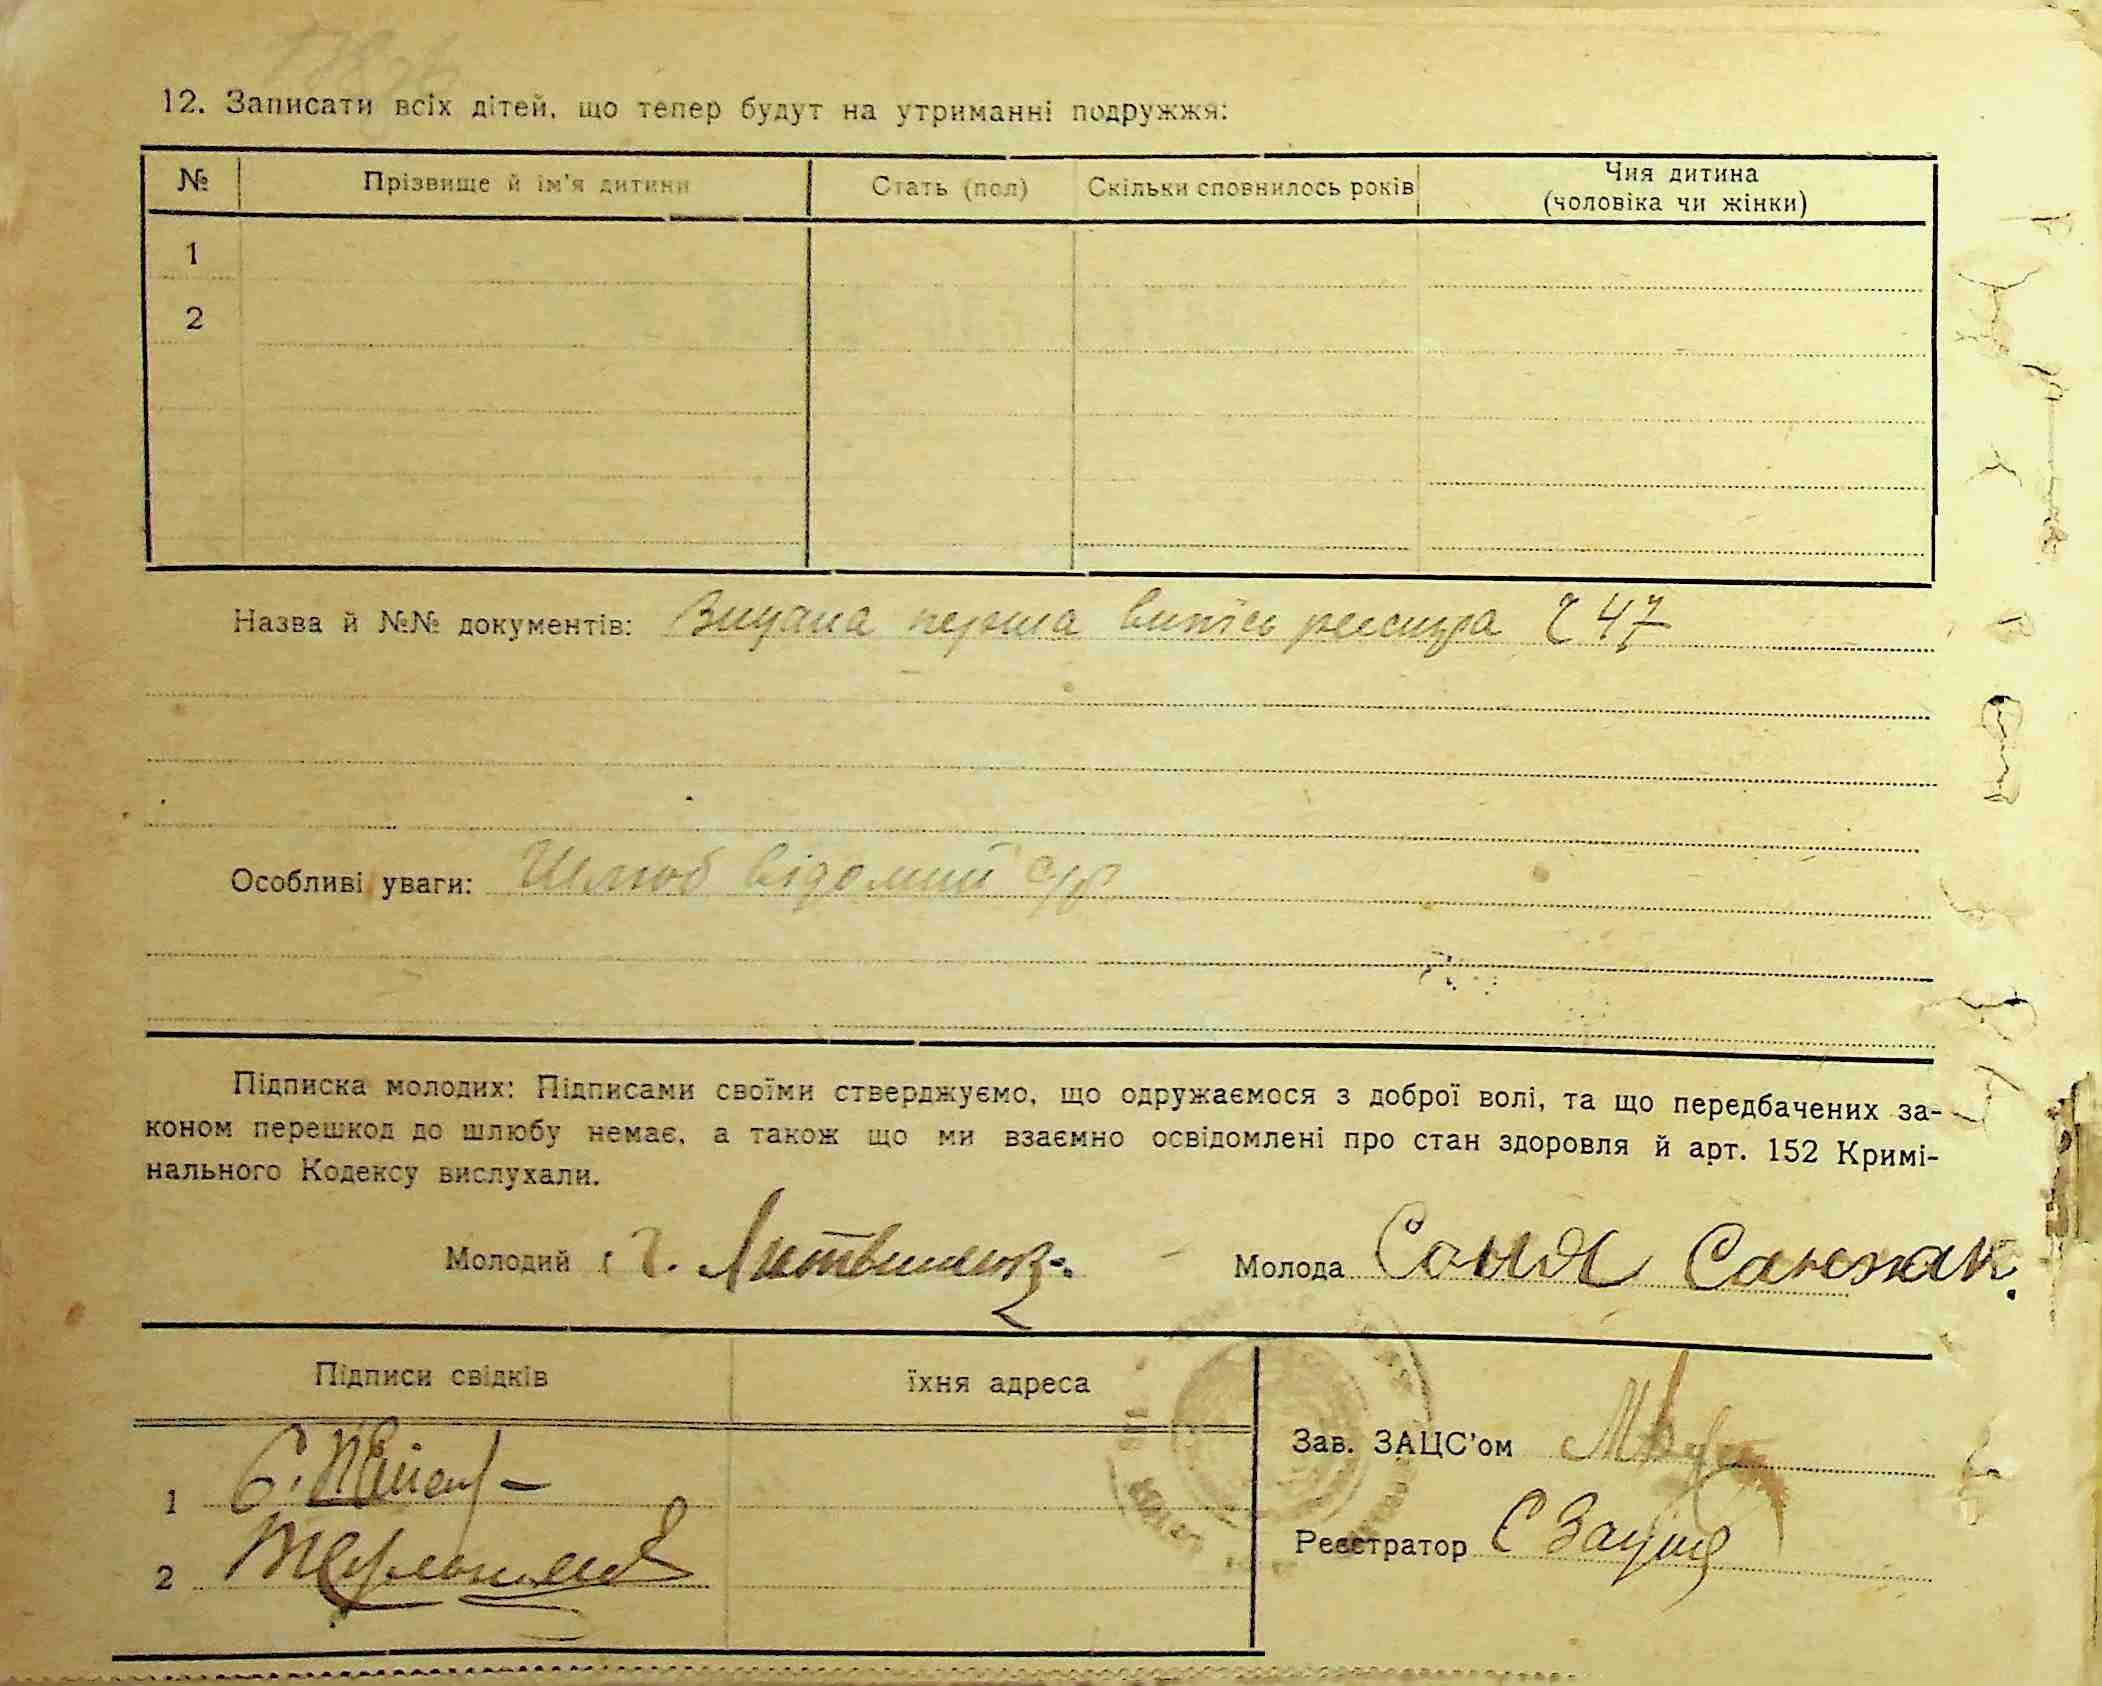 12. Записати всіх дітей, що тепер будут на утриманні подружжя:
№ Прізвище й ім'я дитини Стать (пол) Скільки сповнилось років Чия дитина (чоловіка чи жінки)
1
2
Назва й №№ документів: Видана перша випісь реєстра 47
Особливі уваги: Шлюб відомий
Підписка молодих: Підписами своїми стверджуємо, що одружаємося з доброї волі, та що передбачених за-
коном перешкод до шлюбу немає, а також що ми взаємно освідомлені про стан здоровля й арт. 152 Кримі-
нального Кодексу вислухали.
Молодий Молода Соня Санжак.
Підписи свідків їхня адреса
Зав. ЗАЦС'ом
1
Реєстратор
2